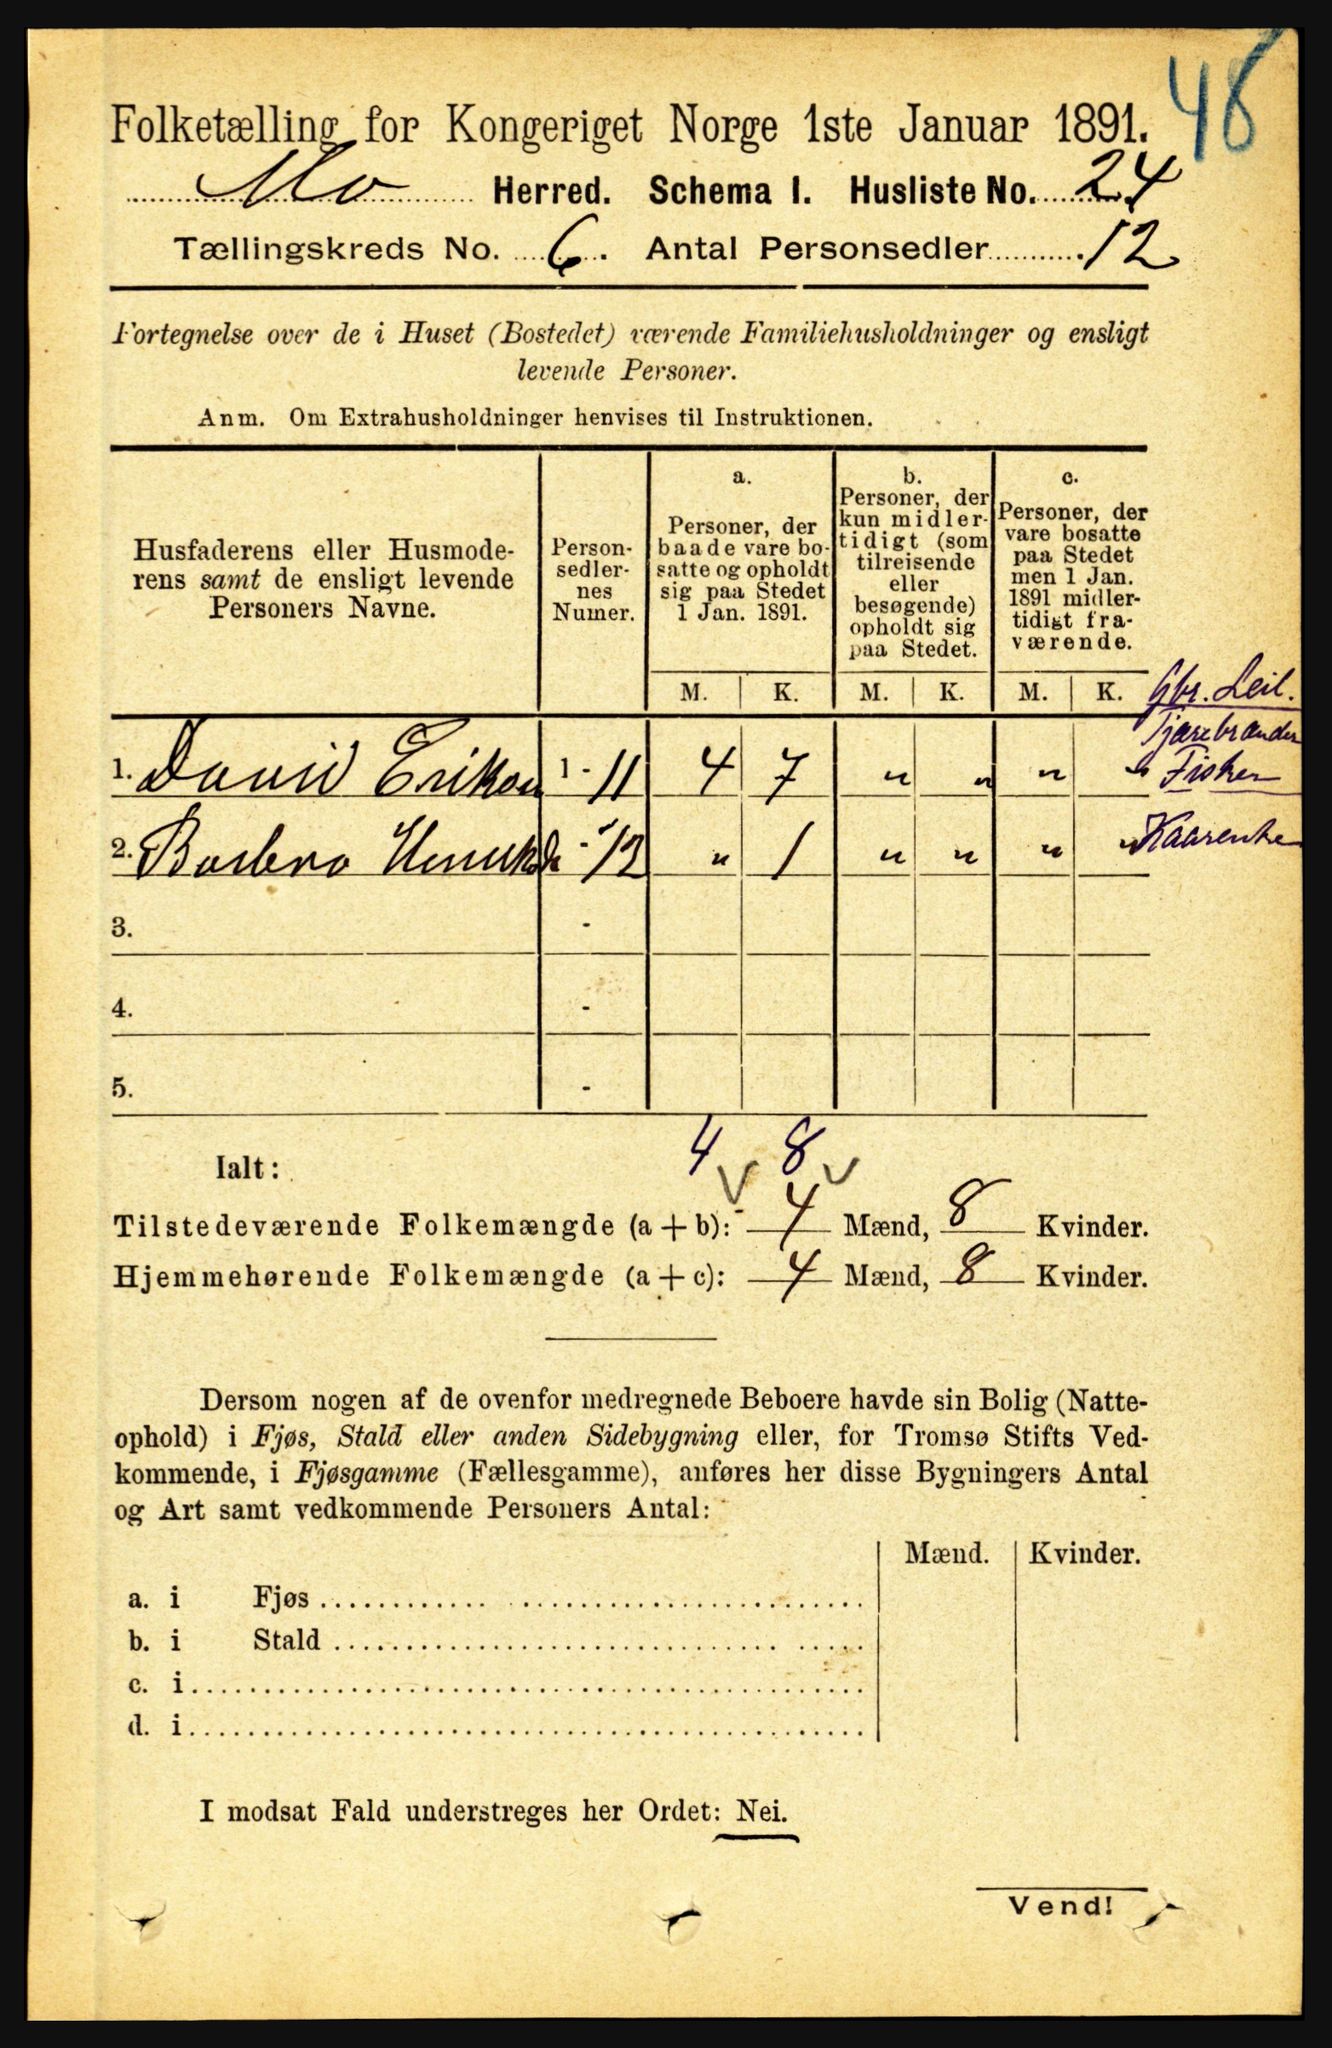 48
Folketælling for Kongeriget Norge 1ste Januar 1891.
Mo Herred. Schema I. Husliste No. 24
Tællingskreds No. 6. Antal Personsedler 12
Fortegnelse over de i Huset (Bostedet) værende Familiehusholdninger og ensligt
levende Personer.
Anm. Om Extrahusholdninger henvises til Instruktionen.
Husfaderens eller Husmode-
rens samt de ensligt levende
Personers Navne.
Person-
sedler-
nes
Numer.
a.
Personer, der
baade vare bo-
satte og opholdt
sig paa Stedet
1 Jan. 1891.
b.
Personer, der
kun midler-
tidigt (som
tilreisende
eller
besøgende)
opholdt sig
paa Stedet.
c.
Personer, der
vare bosatte
paa Stedet
men 1 Jan.
1891 midler-
tidigt fra-
værende.
M. K. M. K. M. K. Gbr. Leil.
Tjærebrænder
1. David Erikson 1 - 11 4 7 " " " " Fisker
2. Barbro - 12 " 1 " " " "
3. -
4. -
5. -
Ialt: 4 8
Tilstedeværende Folkemængde (a + b): 4 Mænd, 8 Kvinder.
Hjemmehørende Folkemængde (a + c): 4 Mænd, 8 Kvinder.
Dersom nogen af de ovenfor medregnede Beboere havde sin Bolig (Natte-
ophold) i Fjøs, Stald eller anden Sidebygning eller, for Tromsø Stifts Ved-
kommende, i Fjøsgamme (Fællesgamme), anføres her disse Bygningers Antal
og Art samt vedkommende Personers Antal:
Mænd. Kvinder.
a. i Fjøs
b. i Stald
c. i
d. i
I modsat Fald understreges her Ordet: Nei.
Vend!